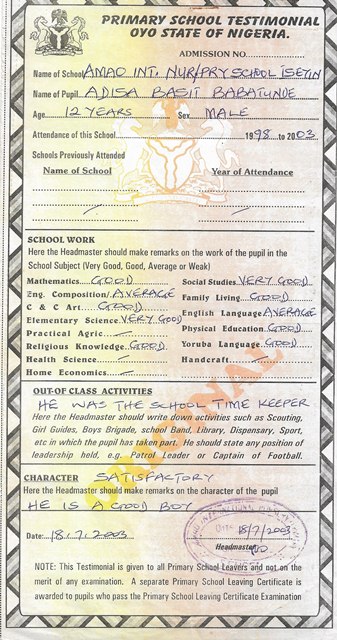 PRIMARY SCHOOL TESTIMONIAL
OYO STATE OF NIGERIA.
ADMISSION NO.
Name of School AMAO INT. NUR/PRY SCHOOL ISEYIN
Name of Pupil ADISA BASIT BABATUNDE
Age 12 YEARS Sex MALE
Attendance of this School 1998 to 2003
Schools Previously Attended
Name of School Year of Attendance
SCHOOL WORK
Here the Headmaster should make remarks on the work of the pupil in the
School Subject (Very Good, Good, Average or Weak)
Mathematics GOOD Social Studies VERY GOOD
Eng. Composition AVERAGE Family Living GOOD
C & C Art GOOD English Language AVERAGE
Elementary Science VERY GOOD Physical Education GOOD
Practical Agric Yoruba Language GOOD
Religious Knowledge GOOD Handcraft
Health Science
Home Economics
ORIGINAL
OUT-OF CLASS ACTIVITIES
HE WAS THE SCHOOL TIME KEEPER
Here the Headmaster should write down activities such as Scouting,
Girl Guides, Boys Brigade, school Band, Library, Dispensary, Sport,
etc in which the pupil has taken part. He should state any position of
leadership held, e.g. Patrol Leader or Captain of Football.
CHARACTER SATISFACTORY
Here the Headmaster should make remarks on the character of the pupil
HE IS A GOOD BOY
Date: 18.7.2003 18/7/2003
Headmaster
NOTE: This Testimonial is given to all Primary School Leavers and not on the
merit of any examination. A separate Primary School Leaving Certificate is
awarded to pupils who pass the Primary School Leaving Certificate Examination